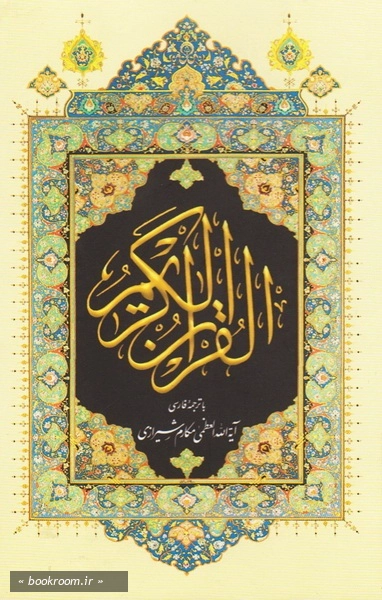 القرآن الكريم
با ترجمهٔ فارسی
آیة‌الله العظمی مکارم شیرازی
« bookroom.ir »